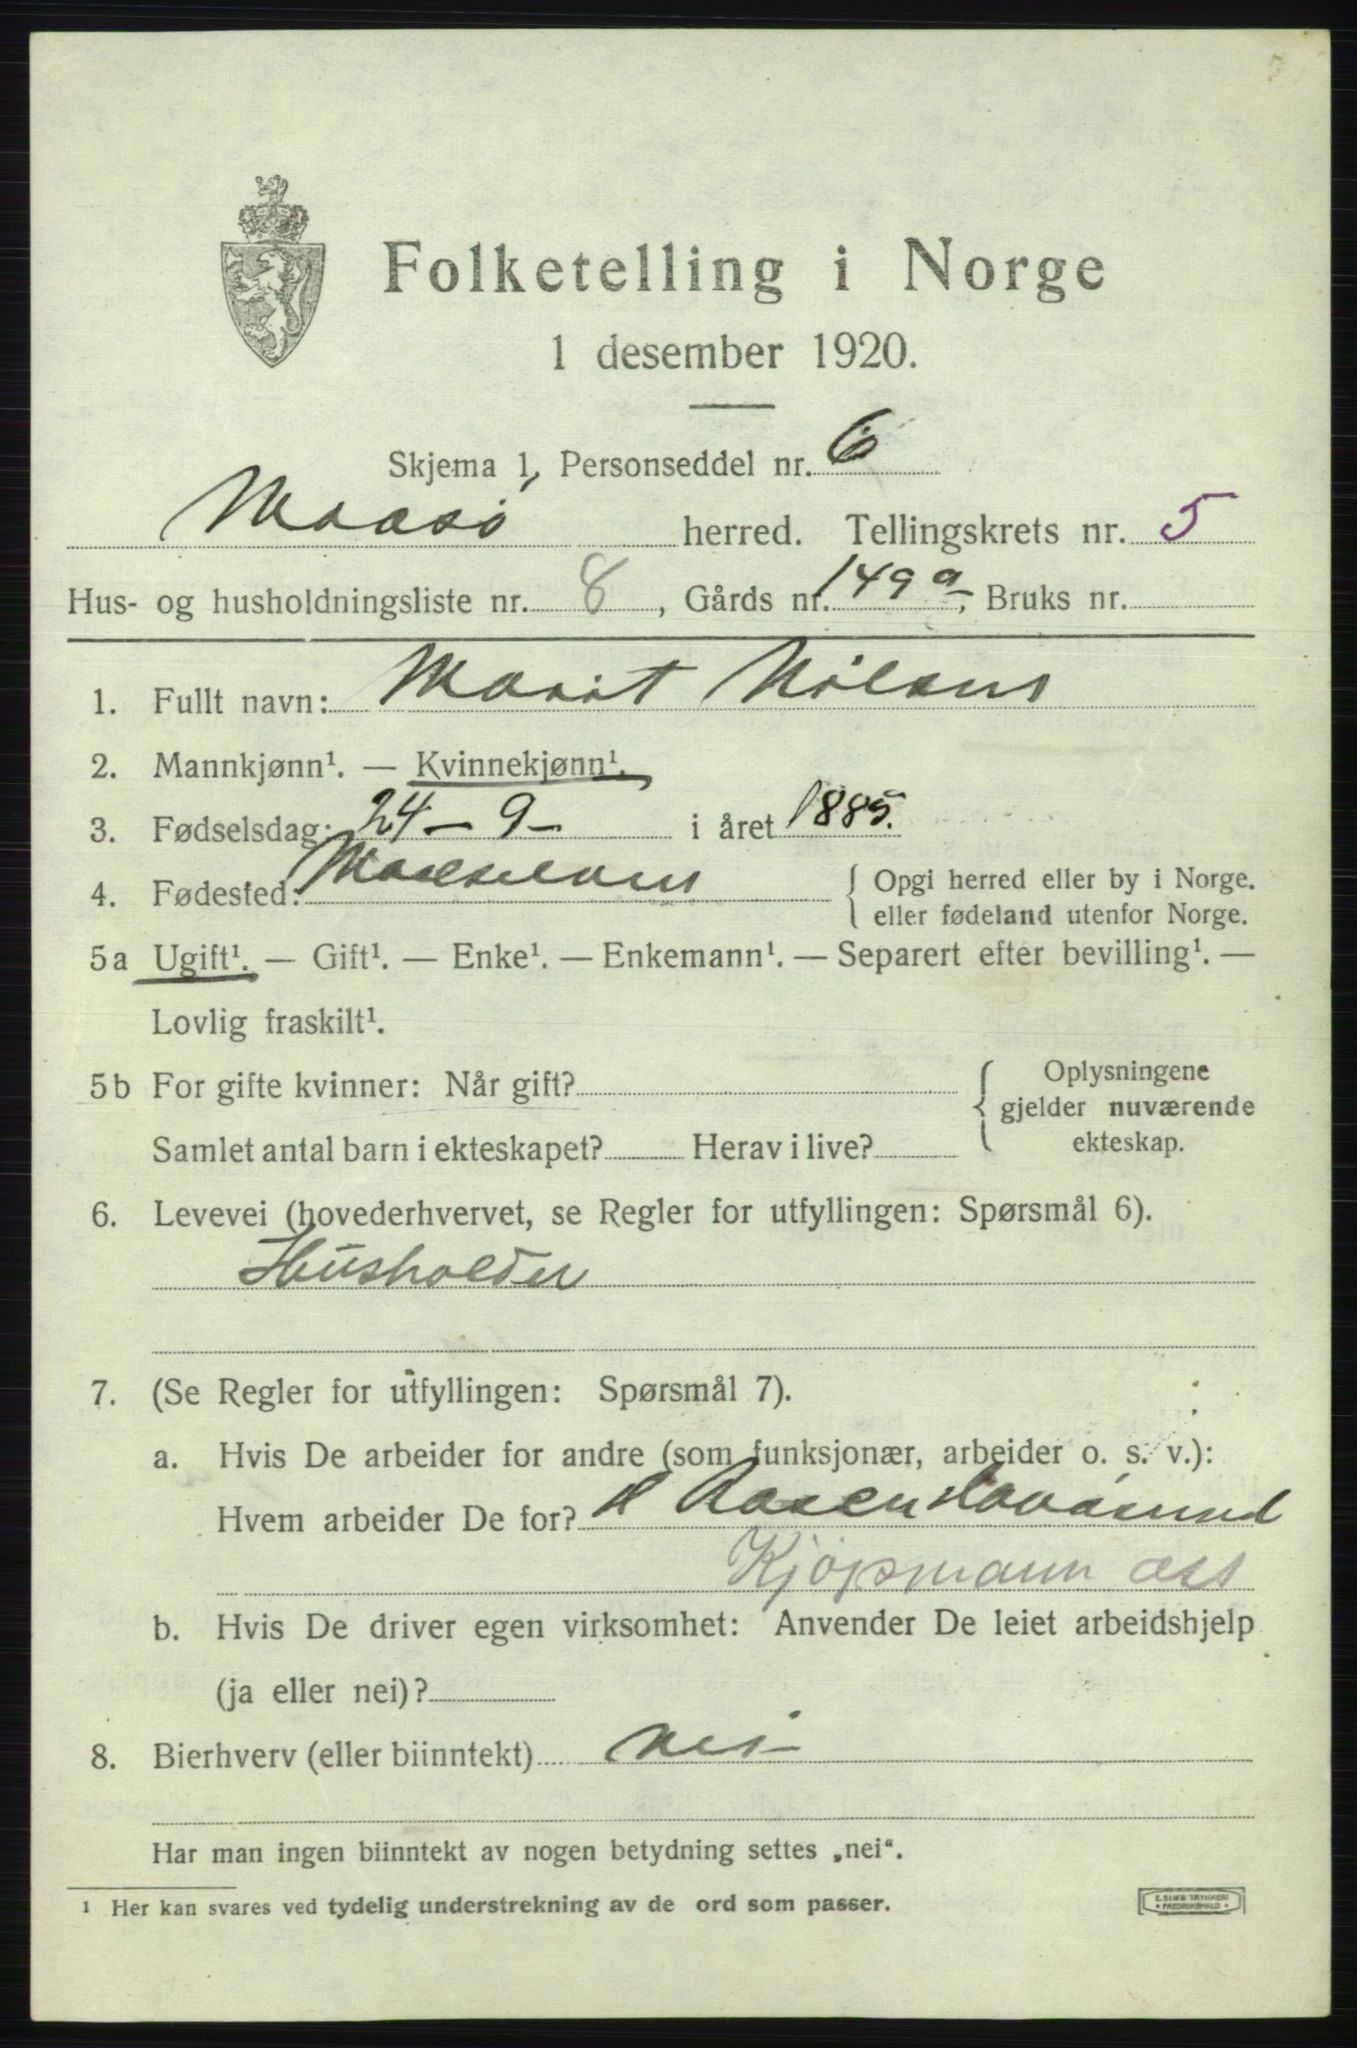 Folketelling i Norge
1 desember 1920.
Skjema 1, Personseddel nr. 6
Maasø herred. Tellingskrets nr. 5
Hus- og husholdningsliste nr. 8, Gårds nr. 149 a, Bruks nr.
1. Fullt navn: Marit Nilsens
2. Mannkjønn¹. — Kvinnekjønn¹.
3. Fødselsdag: 24 – 9 – i året 1885.
4. Fødested: { Opgi herred eller by i Norge.
eller fødeland utenfor Norge.
5a Ugift¹. — Gift¹. — Enke¹. — Enkemann¹. — Separert efter bevilling¹. —
Lovlig fraskilt¹.
5b For gifte kvinner: Når gift? { Oplysningene
gjelder nuværende
Samlet antal barn i ekteskapet? Herav i live? ekteskap.
6. Levevei (hovederhvervet, se Regler for utfyllingen: Spørsmål 6).
Husholder
7. (Se Regler for utfyllingen: Spørsmål 7).
a. Hvis De arbeider for andre (som funksjonær, arbeider o. s. v.):
Hvem arbeider De for? Havøsund
Kjøpmann
b. Hvis De driver egen virksomhet: Anvender De leiet arbeidshjelp
(ja eller nei)?
8. Bierhverv (eller biinntekt) nei –
Har man ingen biinntekt av nogen betydning settes „nei“.
¹ Her kan svares ved tydelig understrekning av de ord som passer.